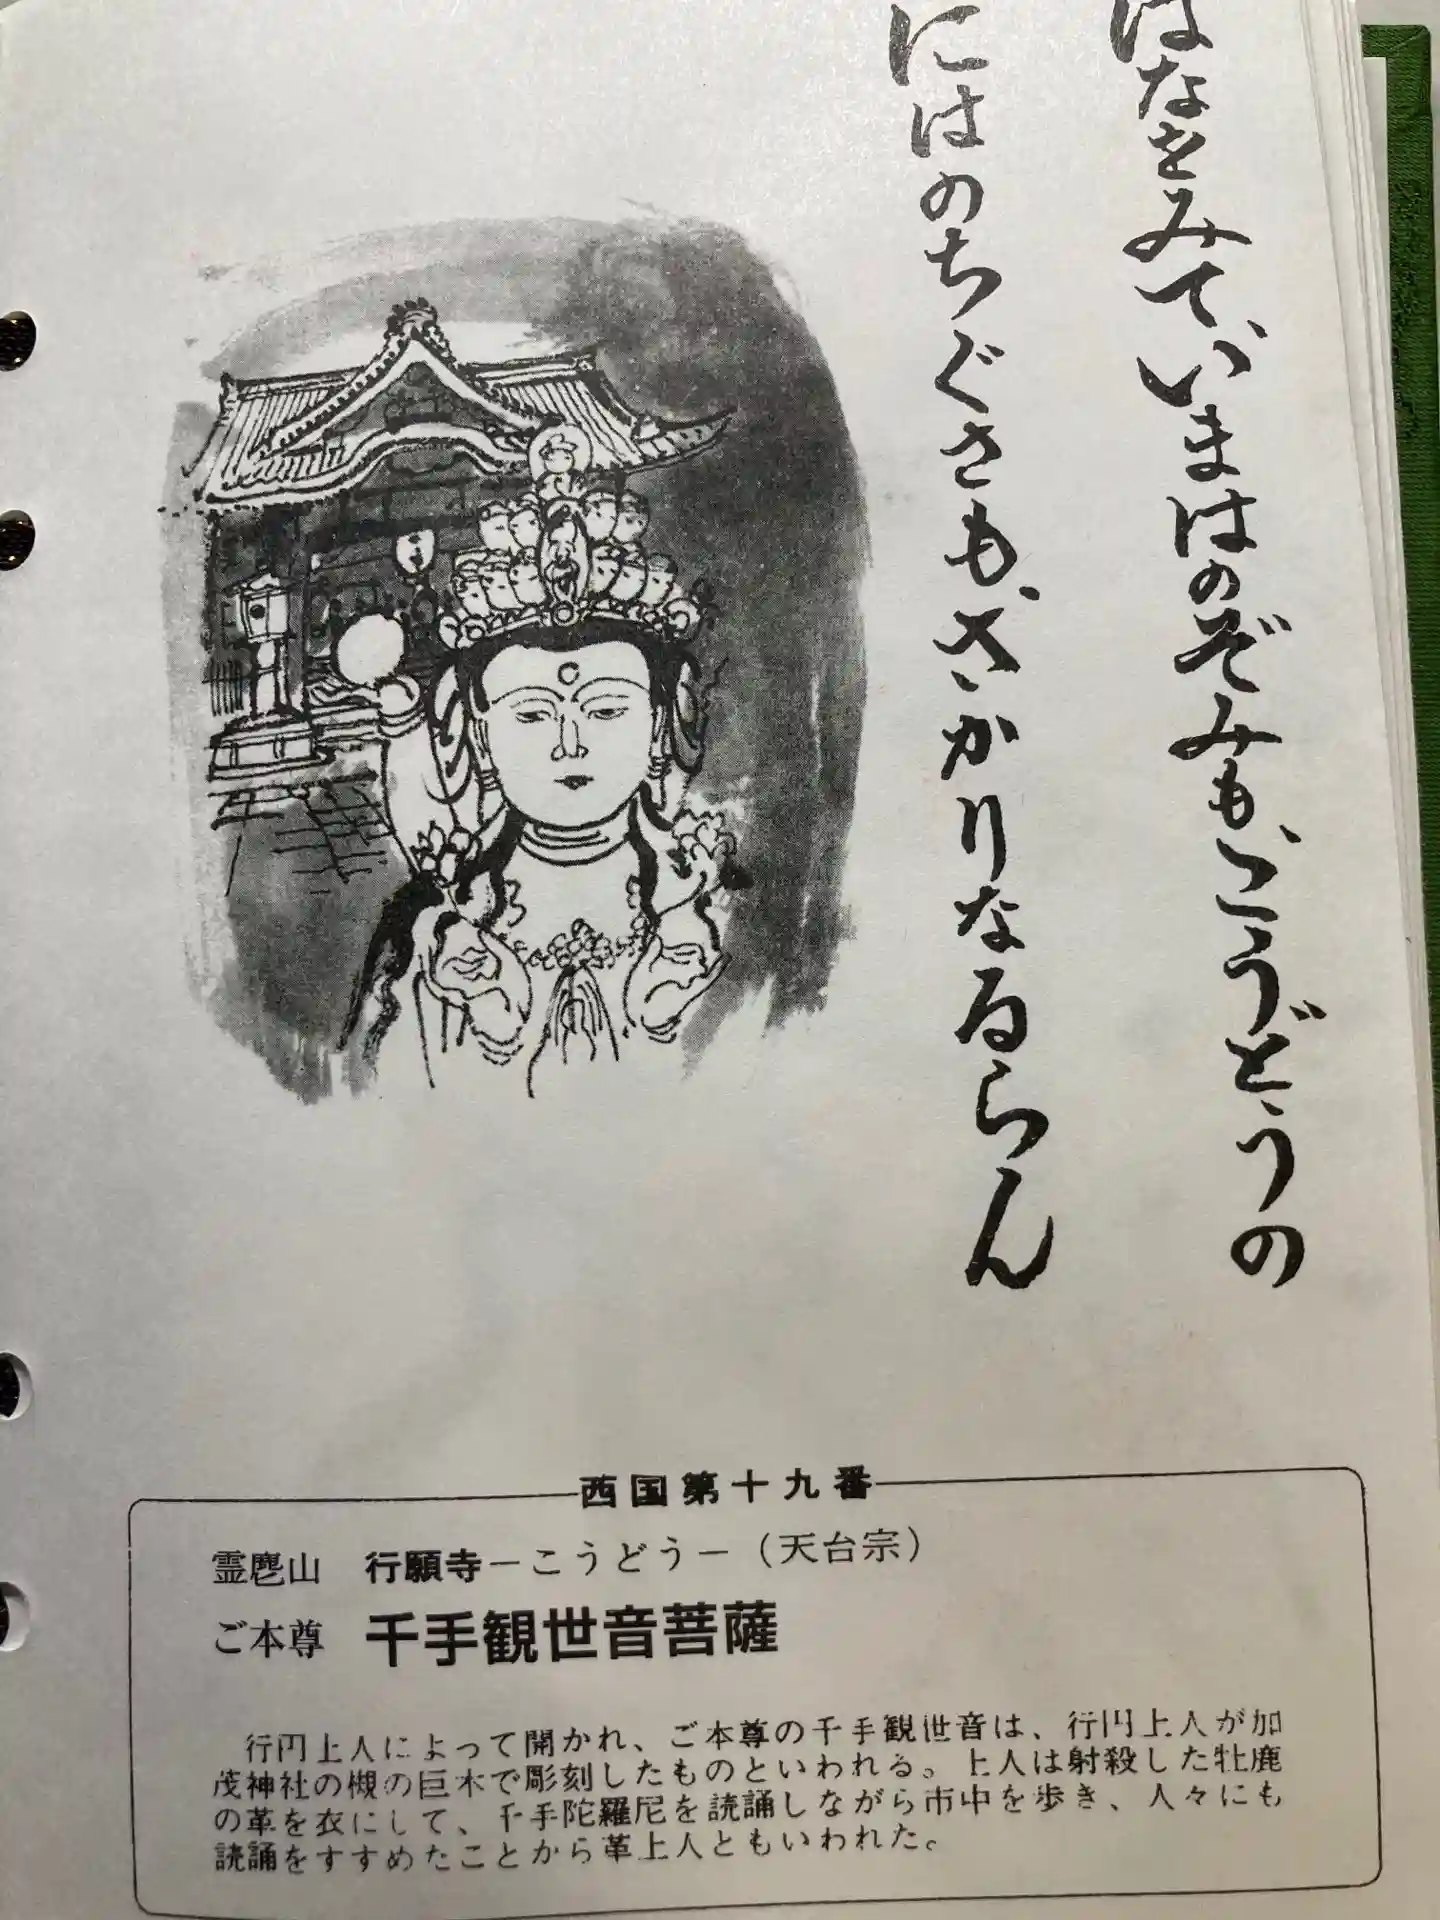 はなをみて、いまはのぞみも、こうどうの
にはのちぐさも、さかりなるらん
西国第十九番
霊麀山 行願寺－こうどう－（天台宗）
ご本尊 千手観世音菩薩
行円上人によって開かれ、ご本尊の千手観世音は、行円上人が加
茂神社の槻の巨木で彫刻したものといわれる。上人は射殺した牡鹿
の革を衣にして、千手陀羅尼を読誦しながら市中を歩き、人々にも
読誦をすすめたことから革上人ともいわれた。